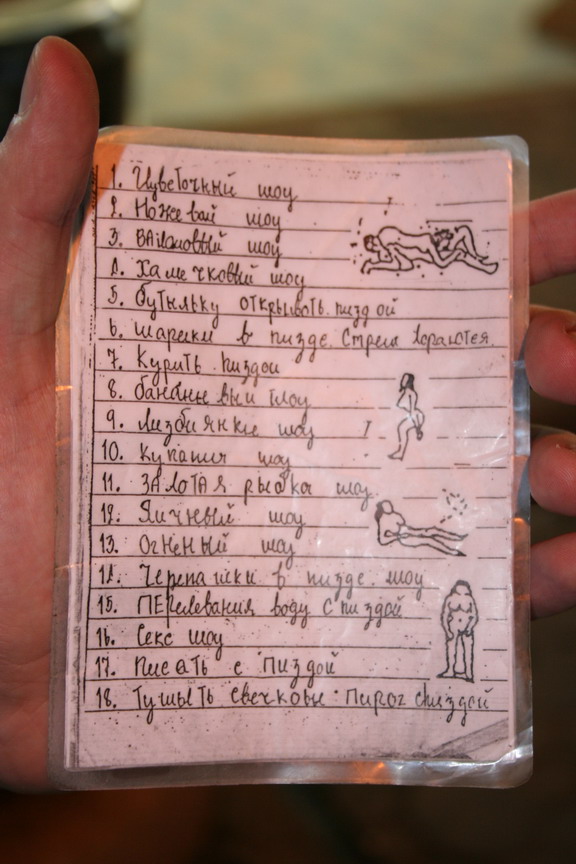 1. Цветочный шоу
2. Ножевай шоу
3. ВАйлаовый шоу
4. Халичковый шоу
5. бутыльку открывать пиздой
6. шарики в пизде. Стрела
7. Курить пиздой
8. бананье выи шоу
9. лизбиянкие шоу
10. купания шоу
11. ЗАЛОТАЯ рыбка шоу.
12. Яичный шоу
13. Огненый шоу
14. Черепашки в пизде. шоу
15. ПЕрелевания воду с пиздой
16. Секс шоу
17. писать с пиздой
18. Тушыть свечковы пирог спиздой